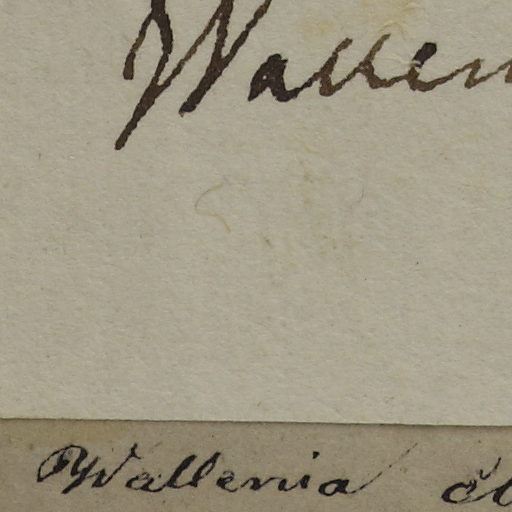 Wallen
Wallenia